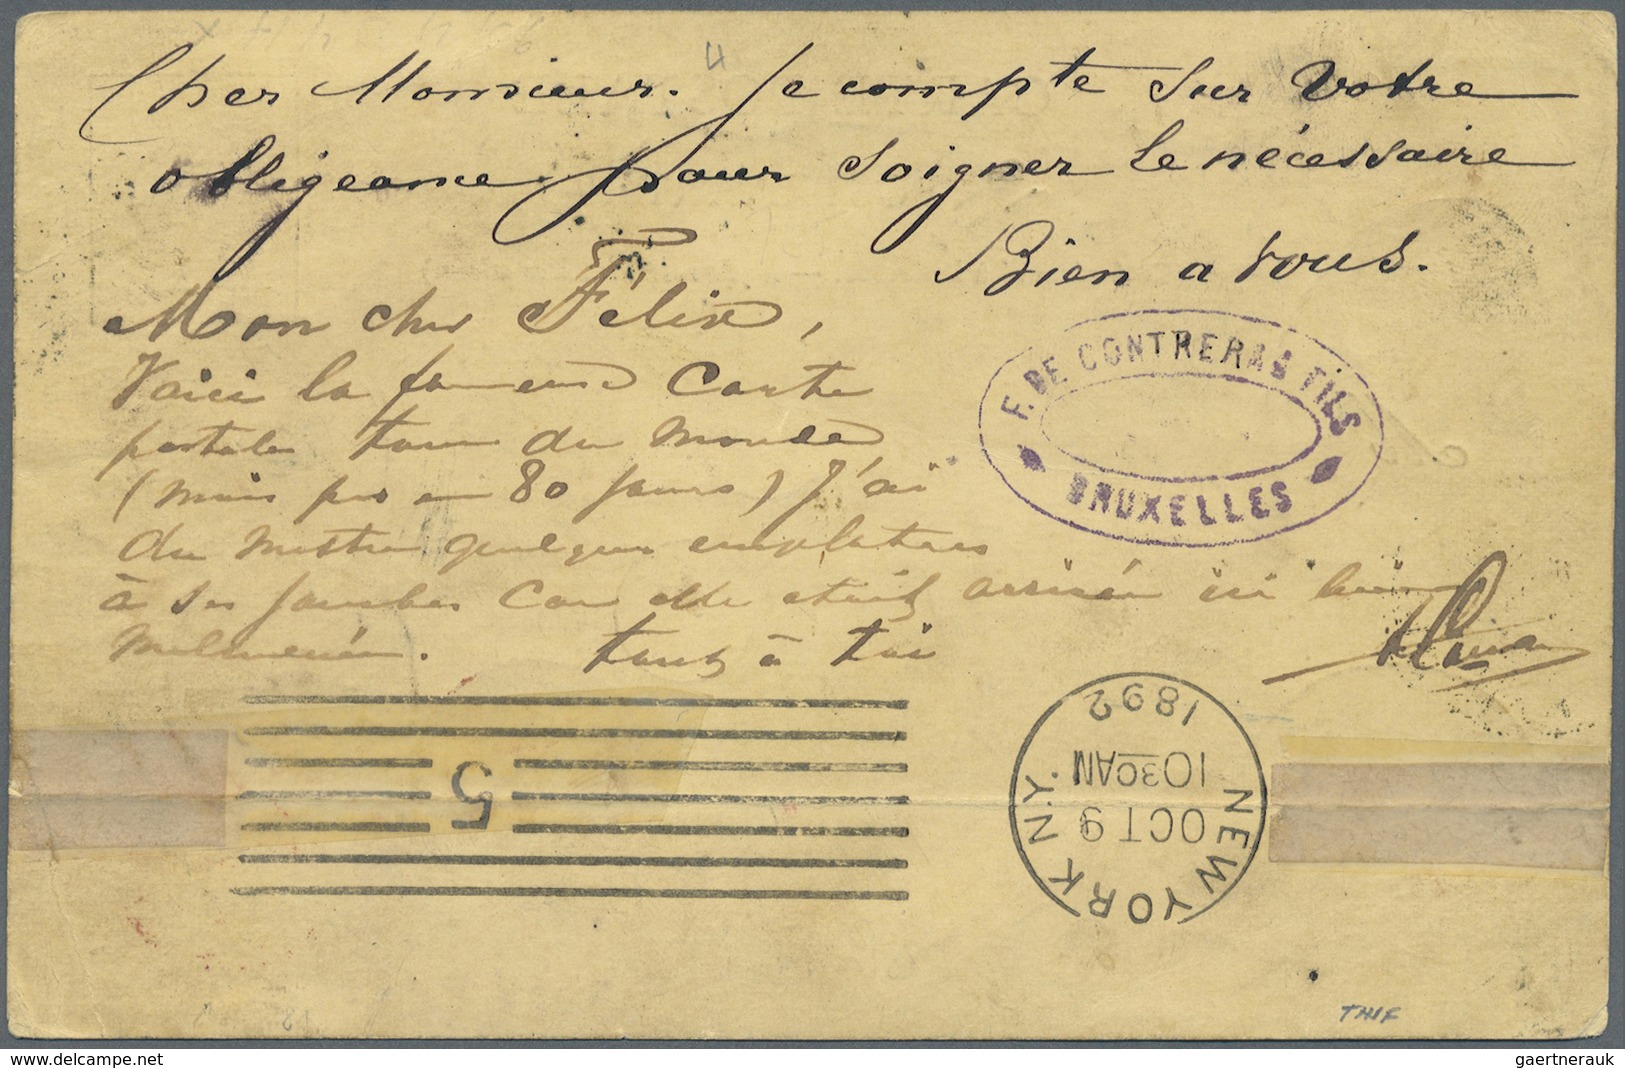 4
Cher Monsieur. Je compte sur votre
obligeance pour soigner le nécessaire
Bien a vous.
Mon cher Félix,
Voici la fameuse Carte
postale tour du monde
(mais pas en 80 jours) J'ai
du mettre quelques emplatres
à ses jambes Car elle était arrivée ici bien
tout à toi
F. DE CONTRERAS FILS
BRUXELLES
NEW YORK N.Y.
OCT 9
1030AM
1892
5
THIF
www.delcampe.net
gaertnerauk